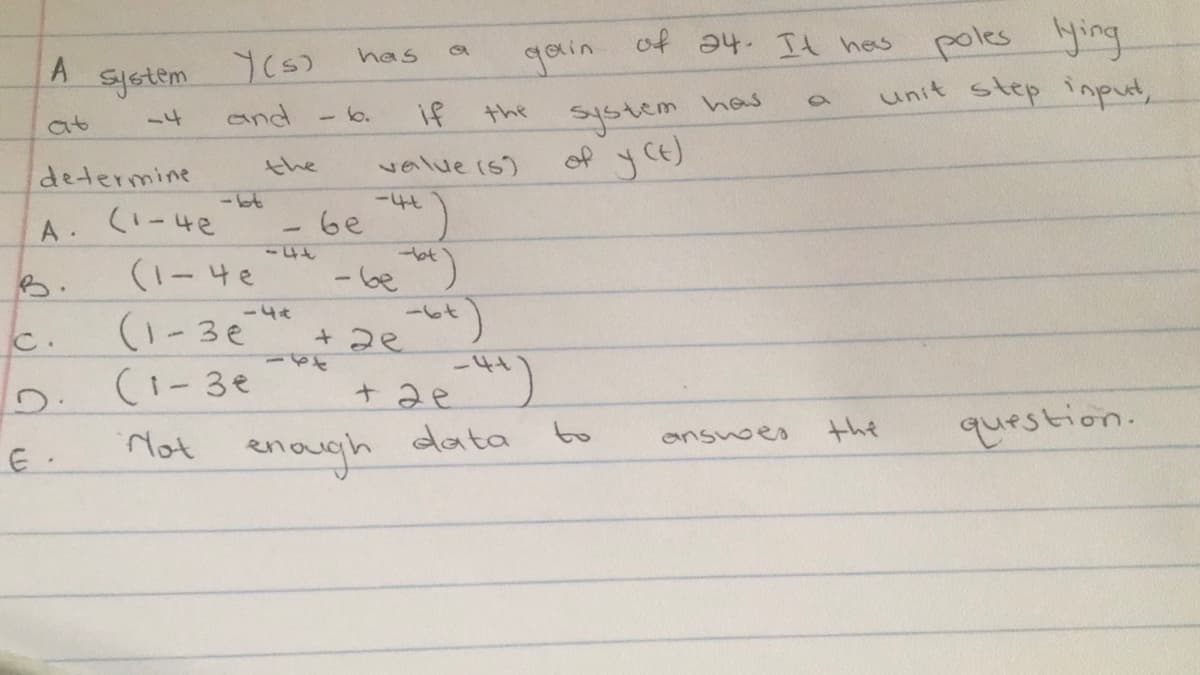 A system Y(s) has a gain of 24. It has poles lying
at -4 and -6. if the system has a unit step input,
determine the value(s) of y(t)
A. (1-4e^-6t - 6e^-4t)
B. (1-4e^-4t - 6e^-6t)
C. (1-3e^-4t + 2e^-6t)
D. (1-3e^-6t + 2e^-4t)
E. Not enough data to answer the question.